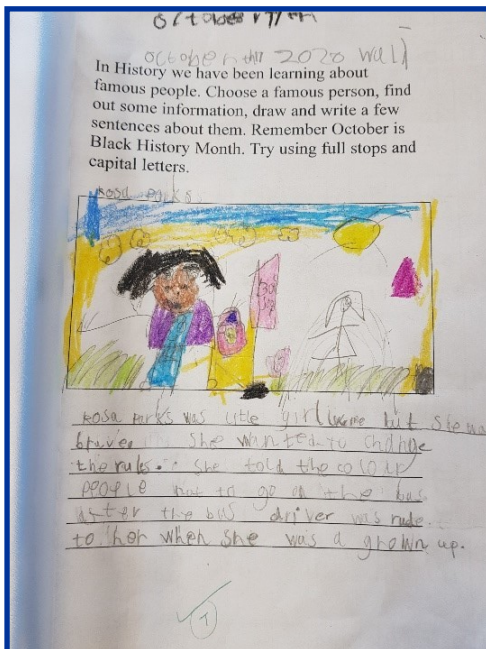 october 17th
october 17th 2020 Wall
In History we have been learning about
famous people. Choose a famous person, find
out some information, draw and write a few
sentences about them. Remember October is
Black History Month. Try using full stops and
capital letters.
Rosa Parks
Rosa Parks was little girl like me but she wa
braver she wanted to change
the rules. she told the
people not to go on the bus
after the bus driver was rude
to her when she was a grown up.
T